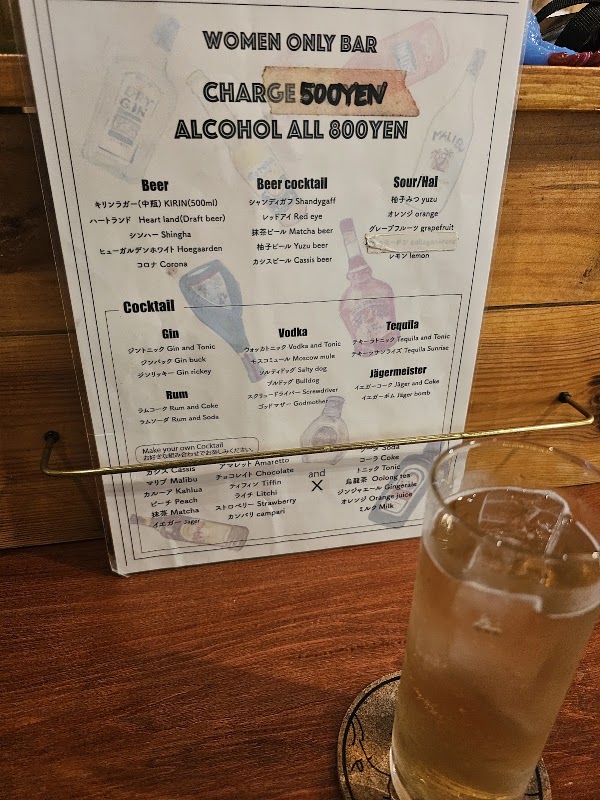 WOMEN ONLY BAR
CHARGE 500YEN
ALCOHOL ALL 800YEN
Beer
キリンラガー(中瓶) KIRIN(500ml)
ハートランド Heart land(Draft beer)
シンハー Shingha
ヒューガルデンホワイト Hoegaarden
コロナ Corona
Beer cocktail
シャンディガフ Shandygaff
レッドアイ Red eye
抹茶ビール Matcha beer
柚子ビール Yuzu beer
カシスビール Cassis beer
Sour/Hai
柚子みつ yuzu
オレンジ orange
グレープフルーツ grapefruit
レモン lemon
Cocktail
Gin
ジントニック Gin and Tonic
ジンバック Gin buck
ジンリッキー Gin rickey
Rum
ラムコーク Rum and Coke
ラムソーダ Rum and Soda
Vodka
ウォッカトニック Vodka and Tonic
モスコミュール Moscow mule
ソルティドッグ Salty dog
ブルドッグ Bulldog
スクリュードライバー Screwdriver
ゴッドマザー Godmother
Tequila
テキーラトニック Tequila and Tonic
テキーラサンライズ Tequila Sunrise
Jägermeister
イエガーコーク Jäger and Coke
イエガーボム Jäger bomb
Make your own Cocktail
お好きな組み合わせでお楽しみください。
カシス Cassis
マリブ Malibu
カルーア Kahlua
ピーチ Peach
抹茶 Matcha
イエガー Jäger
アマレット Amaretto
チョコレイト Chocolate
ティフィン Tiffin
ライチ Litchi
ストロベリー Strawberry
カンパリ campari
and
×
ソーダ Soda
コーラ Coke
トニック Tonic
烏龍茶 Oolong tea
ジンジャエール Gingerale
オレンジ Orange juice
ミルク Milk